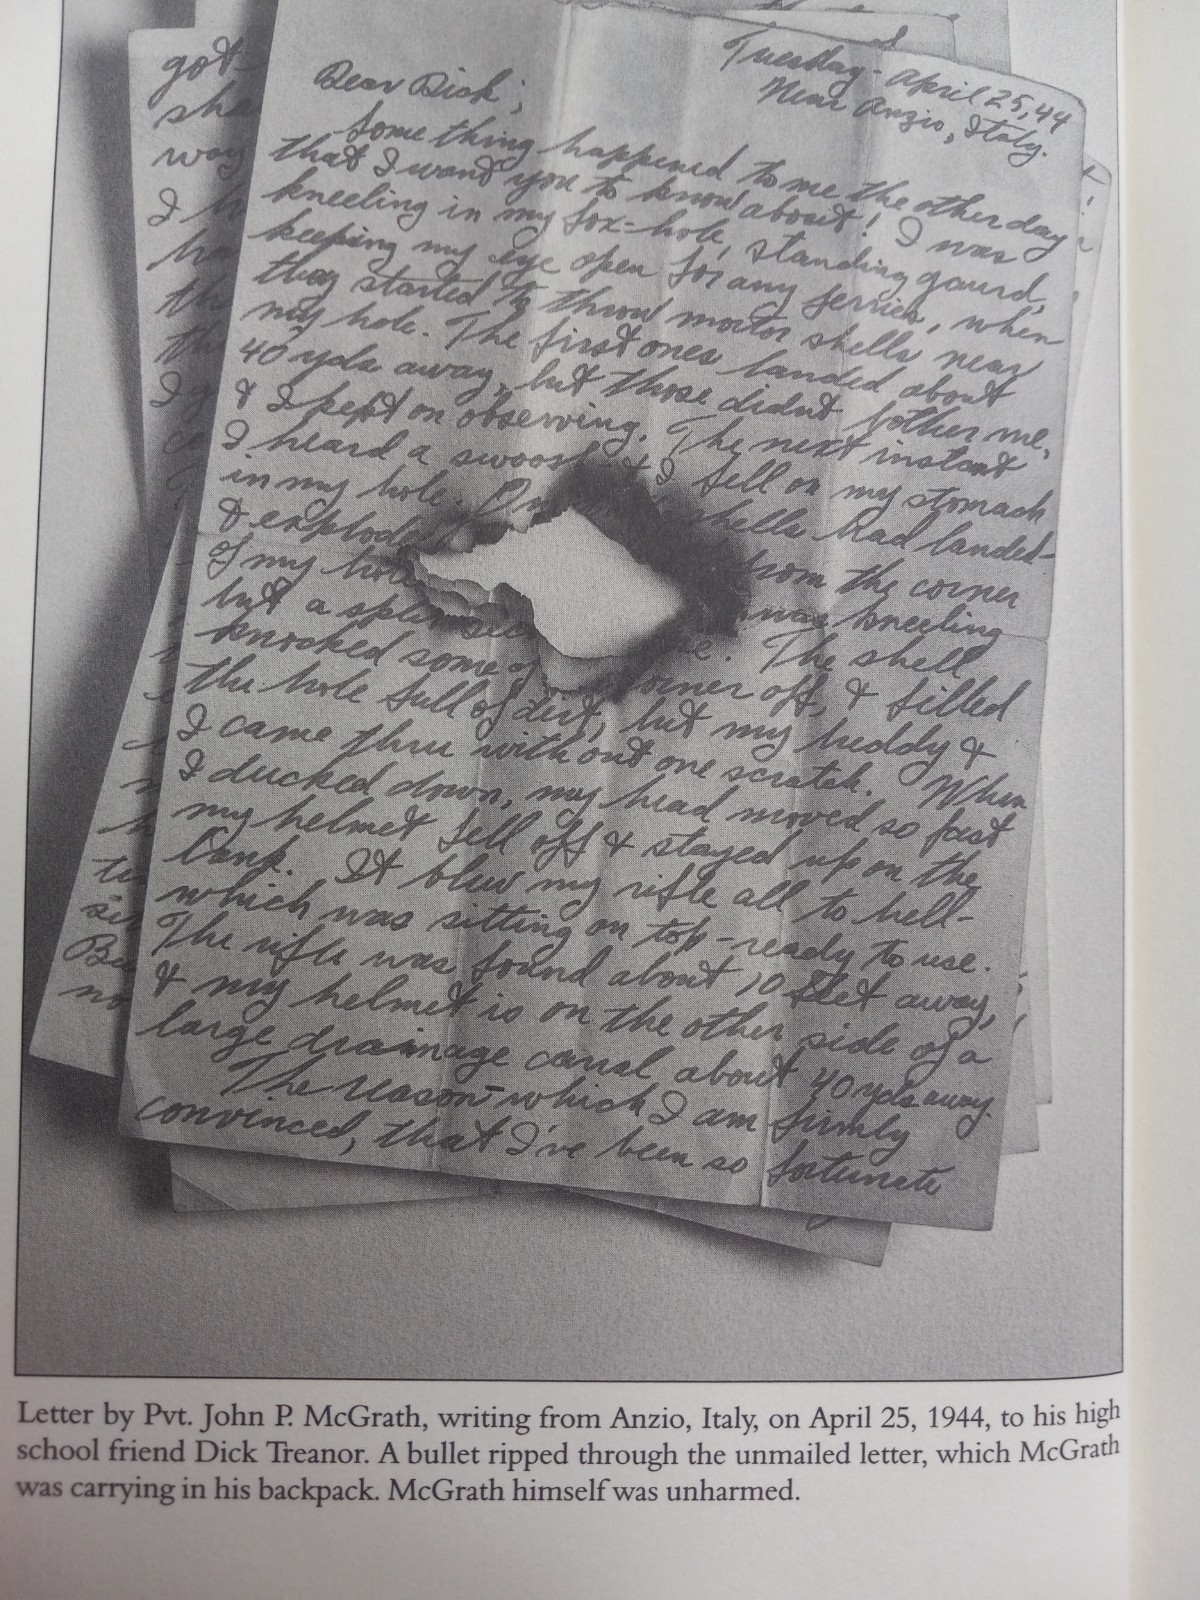 Tuesday - April 25, 44
Near Anzio, Italy.
Dear Dick;
Something happened to me the other day
that I want you to know about! I was
kneeling in my fox-hole, standing gaurd,
keeping my eye open for any jerries, when
they started to throw mortor shells near
my hole. The first ones landed about
40 yds away, but those didnt bother me,
& I kept on observing. The next instant
I heard a swoosh & I fell on my stomach
in my hole. shells had landed
& explode from the corner
of my hole was kneeling
but a split sec The shell
knocked some of corner off, & filled
the hole full of dirt, but my buddy &
I came thru with out one scratch. When
I ducked down, my head moved so fast
my helmet fell off & stayed up on the
bank. It blew my rifle all to hell-
which was sitting on top-ready to use.
The rifle was found about 10 feet away,
& my helmet is on the other side of a
large drainage canal about 40 yds away.
The reason which I am firmly
convinced, that I've been so fortunate
got
sha
way
I h
ha
th
th
I g
ce
te
sir
Be
no
Letter by Pvt. John P. McGrath, writing from Anzio, Italy, on April 25, 1944, to his high
school friend Dick Treanor. A bullet ripped through the unmailed letter, which McGrath
was carrying in his backpack. McGrath himself was unharmed.